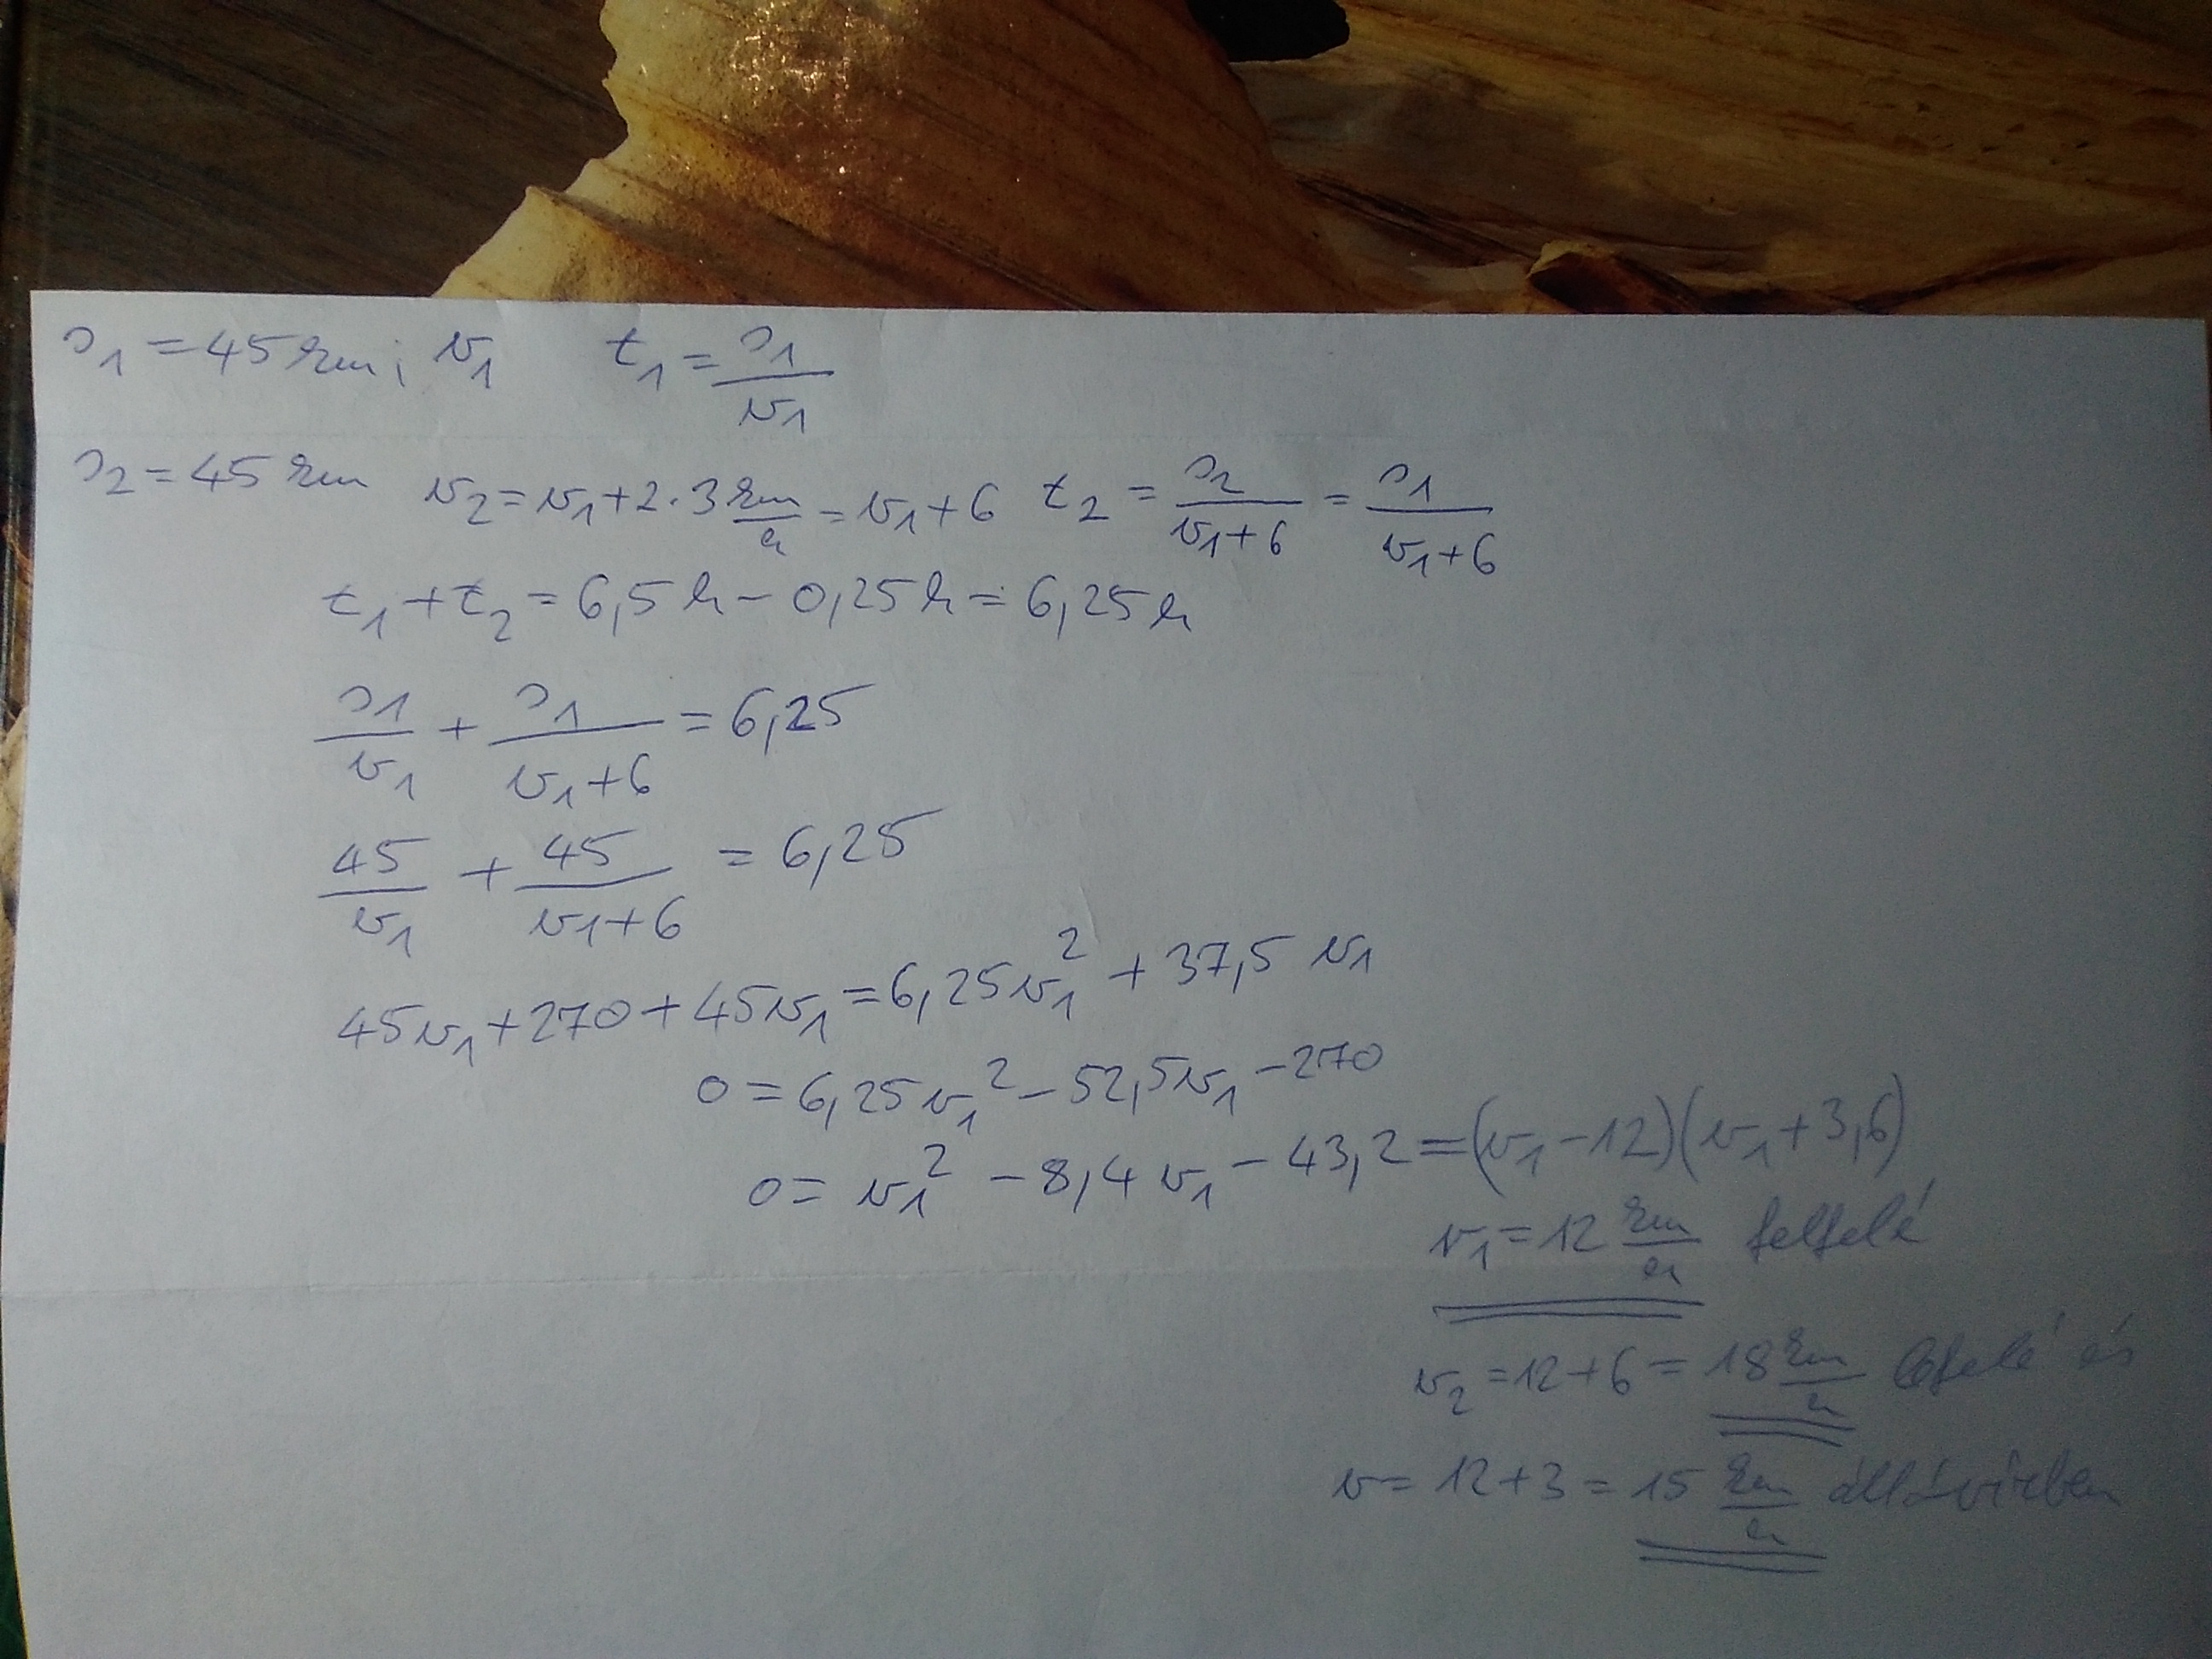 s₁ = 45 km; v₁ t₁ = s₁/v₁
s₂ = 45 km v₂ = v₁ + 2·3 km/h = v₁ + 6 t₂ = s₂/(v₁+6) = s₁/(v₁+6)
t₁ + t₂ = 6,5 h − 0,25 h = 6,25 h
s₁/v₁ + s₁/(v₁+6) = 6,25
45/v₁ + 45/(v₁+6) = 6,25
45v₁ + 270 + 45v₁ = 6,25v₁² + 37,5 v₁
0 = 6,25v₁² − 52,5v₁ − 270
0 = v₁² − 8,4 v₁ − 43,2 = (v₁ − 12)(v₁ + 3,6)
v₁ = 12 km/h felfelé
v₂ = 12 + 6 = 18 km/h lefelé és
v = 12 + 3 = 15 km/h állóvízben